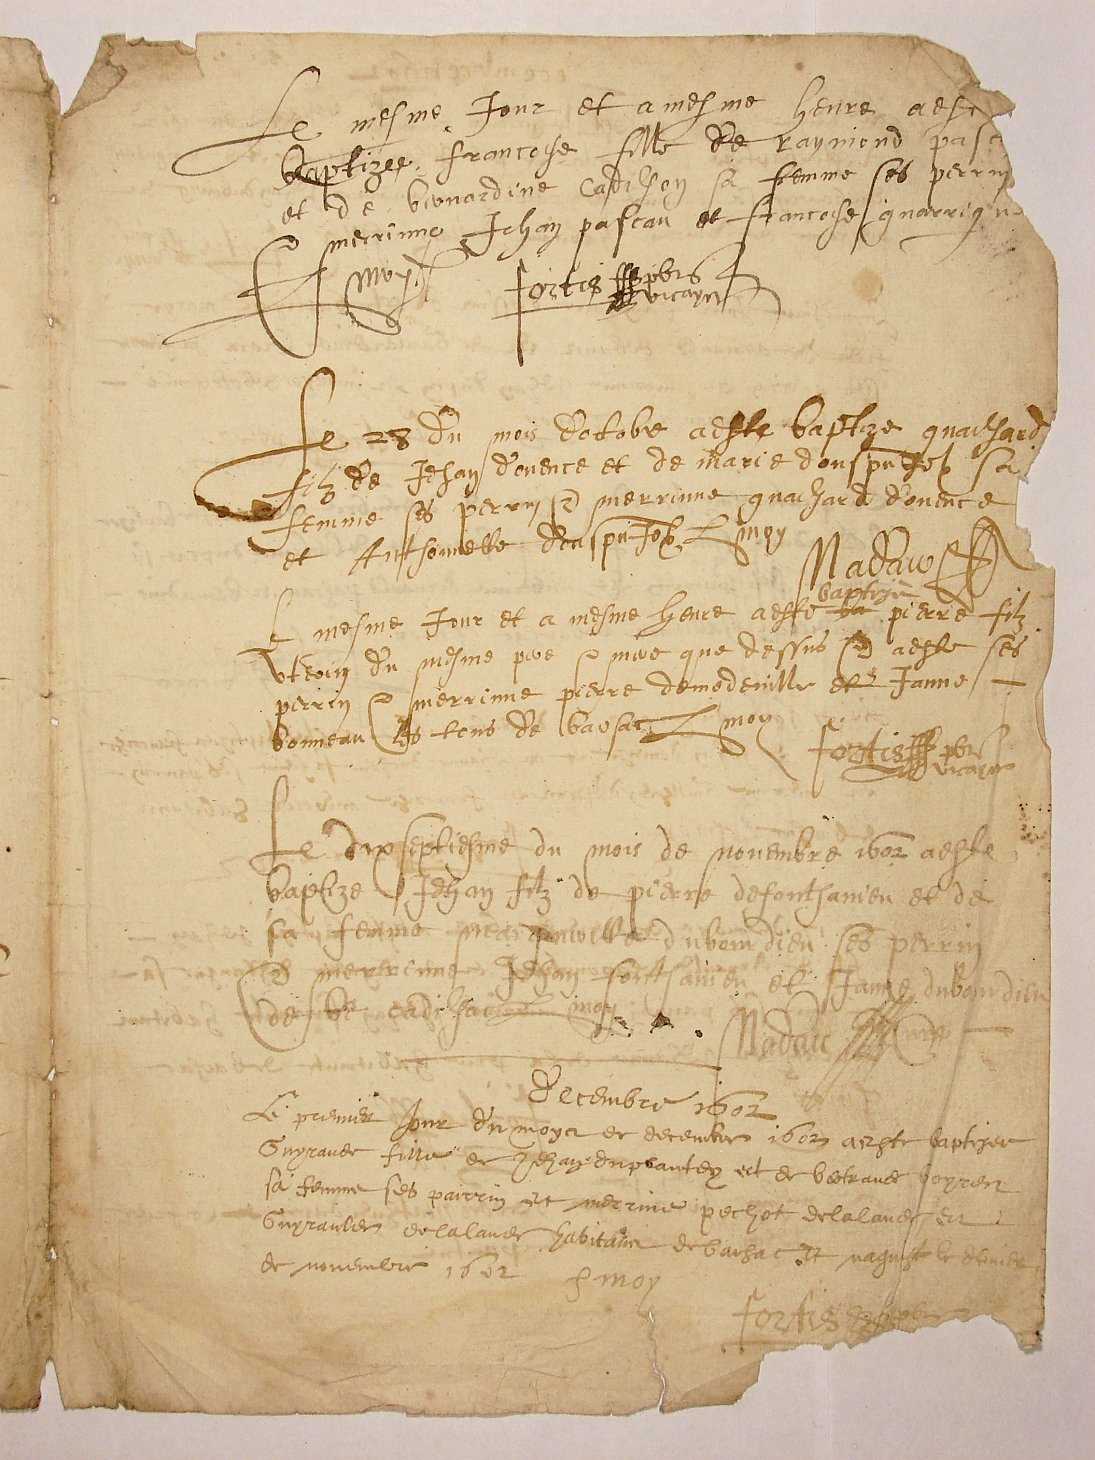 Le mesme Jour et a mesme heure aest
baptizee francoise fille de raymond pasc
et de bernardine Cadilhon sa femme ses perrin
et merrinne Jehan pascau et francoise
moy fortis pbr vicayre
Le 28 du mois d'octobre aeste baptize guailhard
filz de Jehan douence et de marie sa
femme ses perrin et merrinne guailhard douence
et Anthonnette moy
Madaw
Le mesme Jour et a mesme heure aeste baptizé pierre filz
uterin du mesme pere et mere que dessus et aeste ses
perrin et merrinne pierre demedeville et Janne
bonneau tous de barsac moy
fortis pbr vicaire
Le dixseptiesme du mois de novembre 1602 aeste
baptize Jehan filz de pierre defonthanieu et de
sa femme dubourdieu ses perrin
et merrinne Jehan fonthanieu et Janne dubourdieu
de cadilhac moy
Madau
Decembre 1602
Le premier Jour du moys de decembre 1602 aeste baptizee
Guyraude fille de Jehan duplantey et de bertrande boyren
sa femme ses pairrin et merrine pechot delalande et
Guyraulde delalande habitans de barsac et naquist le
de novembre 1602 moy
fortis pbr